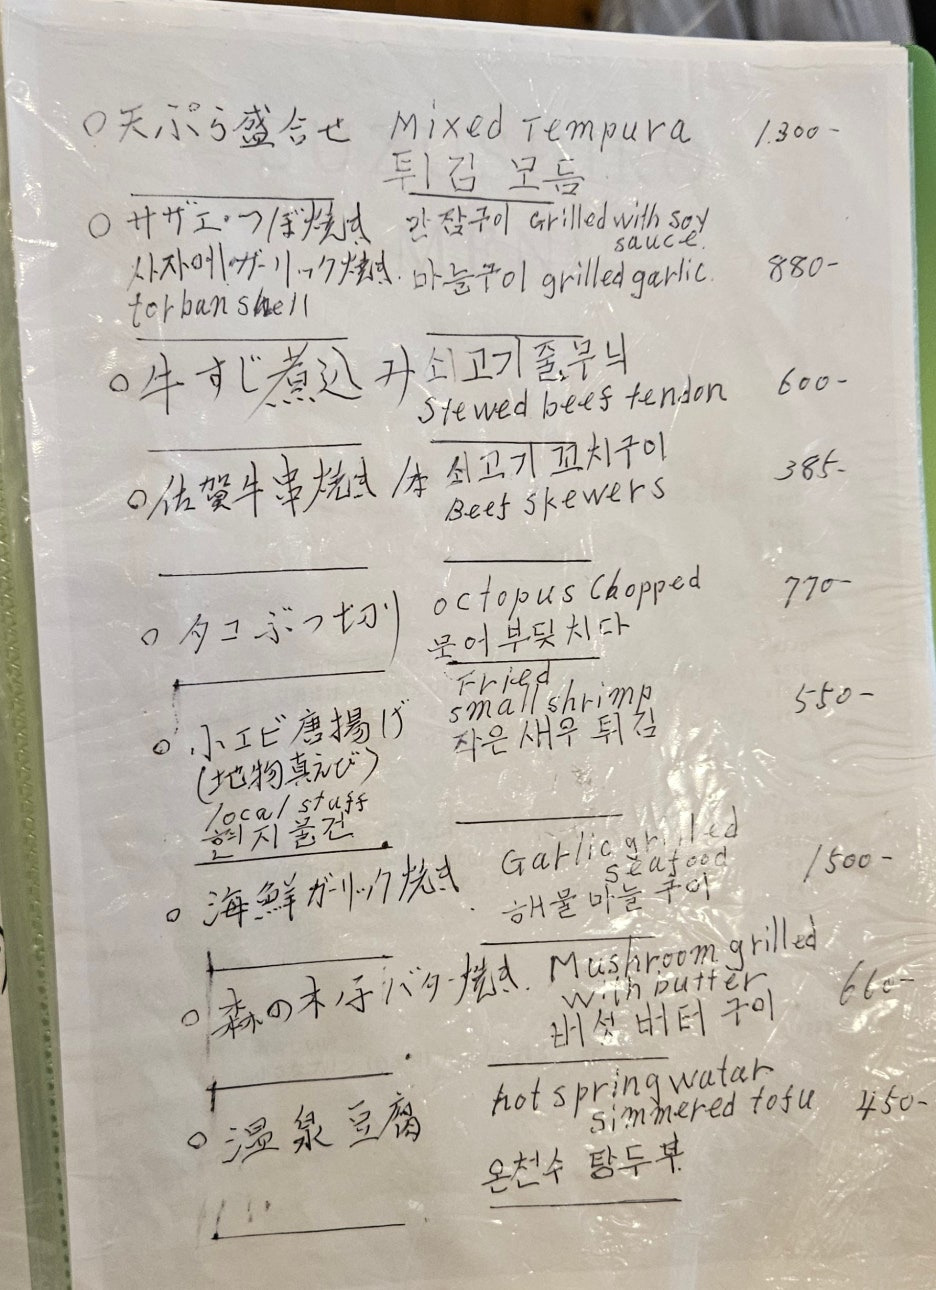 ○ 天ぷら盛合せ Mixed Tempura 1.300-
튀김 모듬
○ サザエ・つぼ焼き 간장구이 Grilled with soy
sauce.
사자에 ガーリック焼き. 마늘구이 grilled garlic. 880-
torban shell
○ 牛すじ煮込み 쇠고기 줄무늬
Stewed beef tendon 600-
○ 佐賀牛串焼き /本 쇠고기 꼬치구이 385-
Beef Skewers
○ タコぶつ切り octopus Chopped 770-
문어 부딪치다
Fried
○ 小エビ唐揚げ small shrimp 550-
작은 새우 튀김
(地物真えび)
local stuff
현지 물건
○ 海鮮ガーリック焼き Garlic grilled 1500-
seafood
해물 마늘 구이
○ 森の木ノ子バター焼き. Mushroom grilled 660-
with butter
버섯 버터 구이
○ 温泉豆腐 hot spring watar
simmered tofu 450-
온천수 탕두부